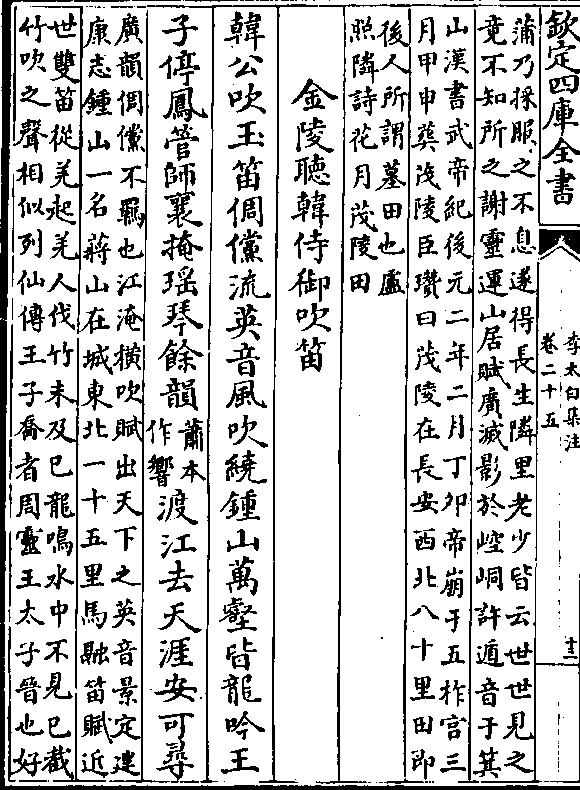 欽定四庫全書
李太白集注
卷二十五
十三
蒲乃採服之不息遂得長生隣里老少皆云世世見之
竟不知所之謝靈運山居賦廣滅影於崆峒許遁音于箕
山漢書武帝紀後元二年二月丁夘帝崩于五柞宫三
月甲申葬茂陵臣瓚曰茂陵在長安西北八十里田即
後人所謂墓田也盧
照隣詩花月茂陵田
金陵聽韓侍御吹笛
韓公吹玉笛倜儻流英音風吹繞鍾山萬壑皆龍吟王
子停鳳管師襄掩瑶琴餘韻
蕭本
作響
渡江去天涯安可尋
廣韻倜儻不羈也江淹橫吹賦出天下之英音景定建
康志鍾山一名蔣山在城東北一十五里馬融笛賦近
世雙笛從羌起羌人伐竹未及已龍鳴水中不見已截
竹吹之聲相似列仙傳王子喬者周靈王太子晉也好